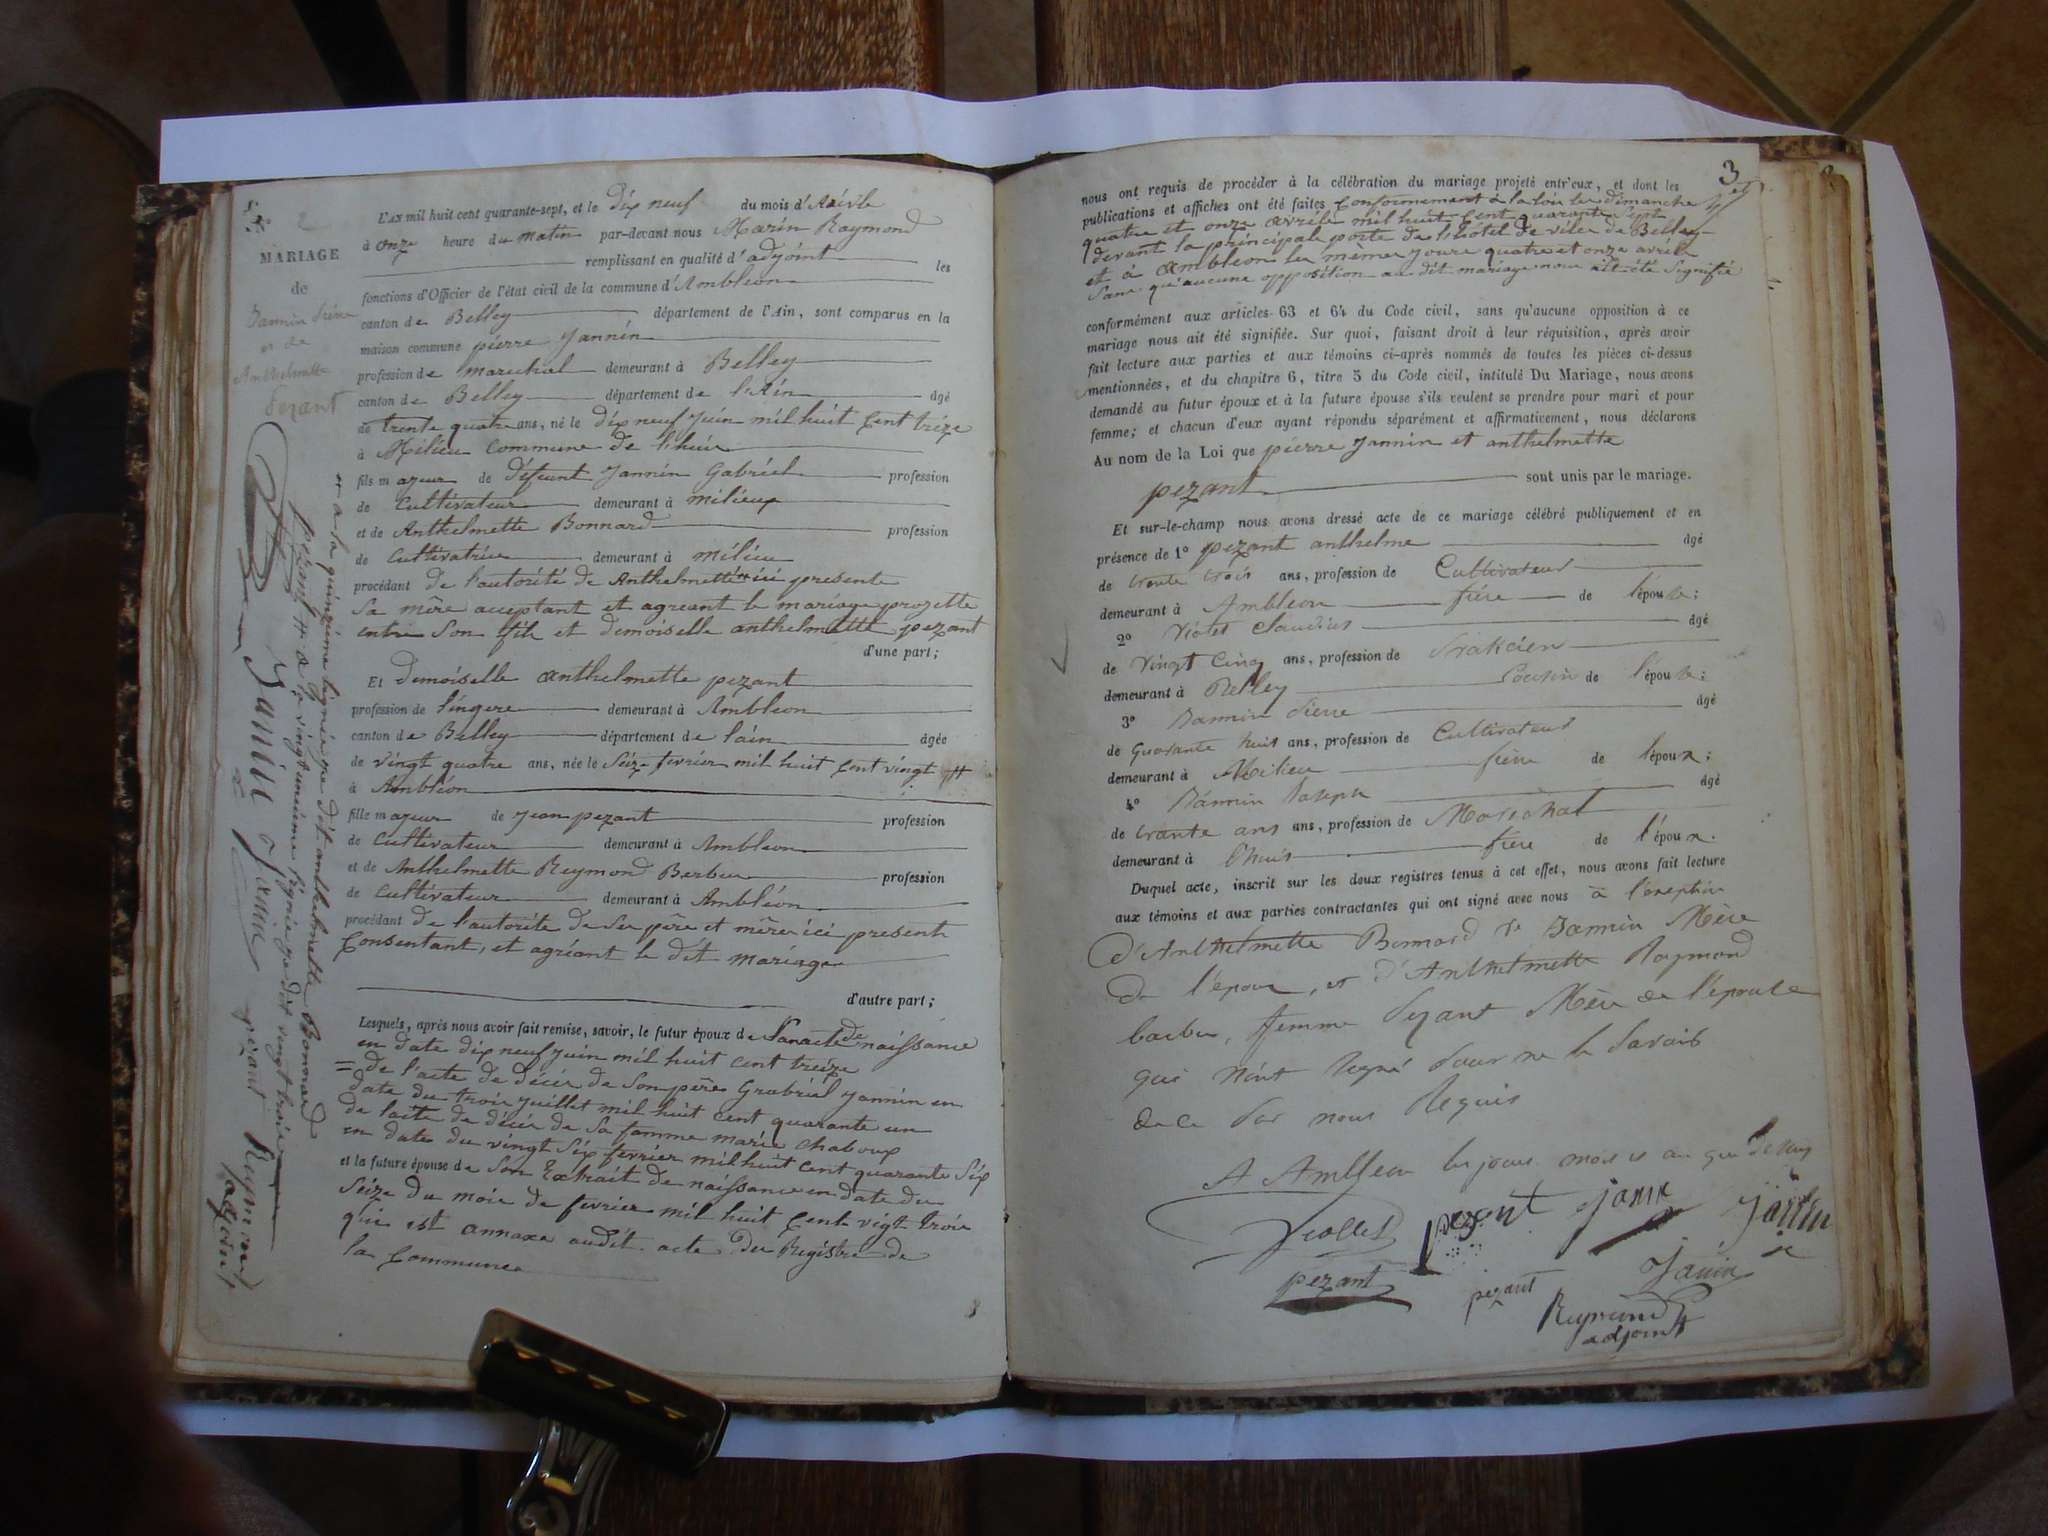 MARIAGE
de
Jannin Pierre
et de
Anthelmette
Pezant
L'AN mil huit cent quarante-sept, et le dix neuf du mois d'Avirle
à onze heure du matin par-devant nous Marin Raymond
remplissant en qualité d'adjoint les
fonctions d'Officier de l'état civil de la commune d'Ambléon
canton de Belley département de l'Ain, sont comparus en la
maison commune pierre Jannin
profession de marechal demeurant à Belley
canton de Belley département de l'Ain âgé
de trente quatre ans, né le dix neuf Juin mil huit Cent treize
à Milieu Commune de Lhuis
fils majeur de défeunt Jannin Gabriel profession
de Cultivateur demeurant à milieux
et de Anthelmette Bonnard profession
de Cultivatrice demeurant à milieu
procédant de l'autorité de Anthelmette ici presente
Sa mère acceptant et agreant le mariage projette
entre Son fils et demoiselle anthelmette pezant
d'une part;
Et Demoiselle anthelmette pezant
profession de lingere demeurant à Ambleon
canton de Belley département de lain âgée
de vingt quatre ans, née le Seize fevrier mil huit Cent vingt #
à Ambléon
fille majeur de Jean pezant profession
de Cultivateur demeurant à Ambleon
et de Anthelmette Reymond Berbeu profession
de Cultivateur demeurant à Ambléon
procédant de l'autorité de Ser père et mère ici present
Consentant, et agréant le dit mariage
d'autre part;
Lesquels, après nous avoir fait remise, savoir, le futur époux de Sanacte de naissance
en date dix neuf Juin mil huit cent treize
= de l'acte de décés de Son père Grabriel Jannin en
date du trois Juillet mil huit cent quarante un
de l'acte de décés de Sa famme marie chaboux
en date du vingt Six fevrier mil huit cent quarante Six
et la future épouse de Son Extrait de naissance en date du
Seize du mois de fevrier mil huit Cent vigt trois
qui est annaxe audit acte du Registre de
la Commune
et a la quinzieme lignée je dit anthelmette Bonnard
pezant # a la vingt uneieme lignée je dit vingt trois
Janin Janin pezant Reymond
adjoint
3
nous ont requis de procéder à la célébration du mariage projeté entr'eux, et dont les
publications et affiches ont été faites Conformement à la loi les dimanche
quatre et onze avrile mil huit Cent quarante Sept
devant la principale porte de l'hôtel de ville de Belley
et à Ambleon les meme jours quatre et onze avrile
Sans qu'aucune opposition au dit mariage nous ait été Signifié
conformément aux articles 63 et 64 du Code civil, sans qu'aucune opposition à ce
mariage nous ait été signifiée. Sur quoi, faisant droit à leur réquisition, après avoir
fait lecture aux parties et aux témoins ci-après nommés de toutes les pièces ci-dessus
mentionnées, et du chapitre 6, titre 5 du Code civil, intitulé Du Mariage, nous avons
demandé au futur époux et à la future épouse s'ils veulent se prendre pour mari et pour
femme; et chacun d'eux ayant répondu séparément et affirmativement, nous déclarons
Au nom de la Loi que pierre Jannin et anthelmette
pezant sont unis par le mariage.
Et sur-le-champ nous avons dressé acte de ce mariage célébré publiquement et en
présence de 1° pezant anthelme âgé
de trente trois ans, profession de Cultivateur
demeurant à Ambleon frère de l'épouse;
2° Violet Claudius âgé
de vingt Cinq ans, profession de Praticien
demeurant à Belley Cousin de l'épouse;
3° Jannin Pierre âgé
de Quarante huit ans, profession de Cultivateur
demeurant à Milieu frère de l'époux;
4° Jannin Joseph âgé
de trante ans ans, profession de Maréchal
demeurant à Lhuis frère de l'époux.
Duquel acte, inscrit sur les deux registres tenus à cet effet, nous avons fait lecture
aux témoins et aux parties contractantes qui ont signé avec nous à l'exeption
D'Anthelmette Bonnard Ve Jannin Mère
De l'époux, et d'Anthelmette Raymond
barbeu, femme Pezant Mère de l'épouse
qui n'ont signé pour ne le Savoir
de ce par nous Requis
A Ambleon les jours mois et an que dessus
Viollet pezant janin Janin
pezant pezant Janin
Reymond
adjoint